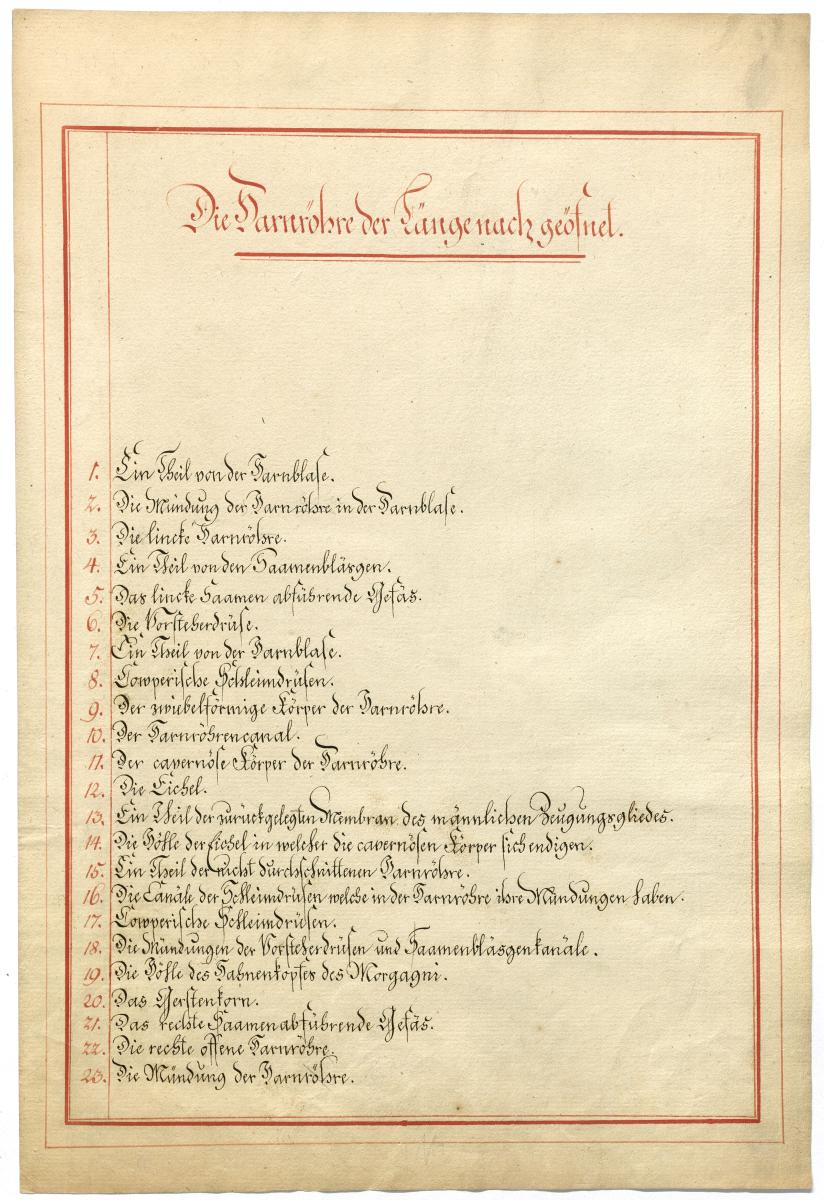 Die Harnröhre der Länge nach geöfnet.
1. Ein Theil von der Harnblase.
2. Die Mündung der Harnröhre in der Harnblase.
3. Die lincke Harnröhre.
4. Ein Theil von den Saamenbläsgen.
5. Das lincke Saamen abführende Gefäs.
6. Die Vorsteherdrüse.
7. Ein Theil von der Harnblase.
8. Cowperische Schleimdrüsen.
9. Der zwiebelförmige Körper der Harnröhre.
10. Der Harnröhrencanal.
11. Der cavernöse Körper der Harnröhre.
12. Die Eichel.
13. Ein Theil der zurückgelegten Membran des männlichen Zeugungsgliedes.
14. Die Höhle der Eichel in welcher die cavernösen Körper sich endigen.
15. Ein Theil der nicht durchschnittenen Harnröhre.
16. Die Canäle der Schleimdrüsen welche in der Harnröhre ihre Mündungen haben.
17. Cowperische Schleimdrüsen.
18. Die Mündungen der Vorsteherdrüsen und Saamenbläsgenkanäle.
19. Die Höhle des Hahnenkopfes des Morgagni.
20. Das Gerstenkorn.
21. Das rechte Saamenabführende Gefäs.
22. Die rechte offene Harnröhre.
23. Die Mündung der Harnröhre.